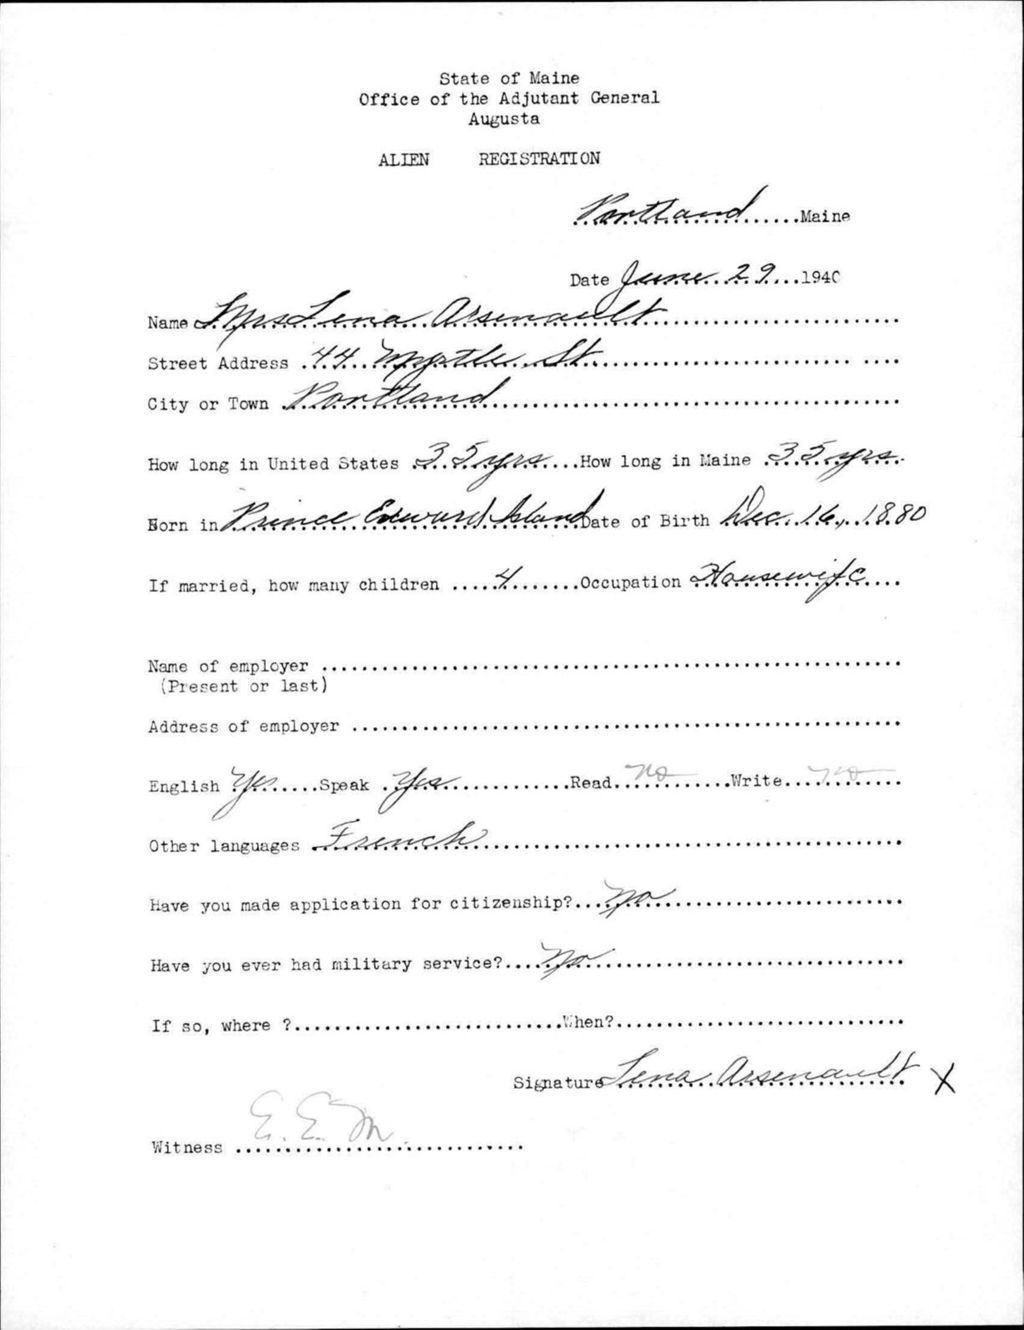 State of Maine
Office of the Adjutant General
Augusta
ALIEN REGISTRATION
Portland Maine
Date June 29 1940
Name Mrs Lena Arsenault
Street Address 44 Myrtle St
City or Town Portland
How long in United States 35 yrs How long in Maine 35 yrs
Born in Prince Edward Island Date of Birth Dec. 16, 1880
If married, how many children 4 Occupation Housewife
Name of employer
(Present or last)
Address of employer
English Yes Speak Yes Read no Write no
Other languages French
Have you made application for citizenship? no
Have you ever had military service? no
If so, where ? When?
Signature Lena Arsenault X
Witness E. E. M.